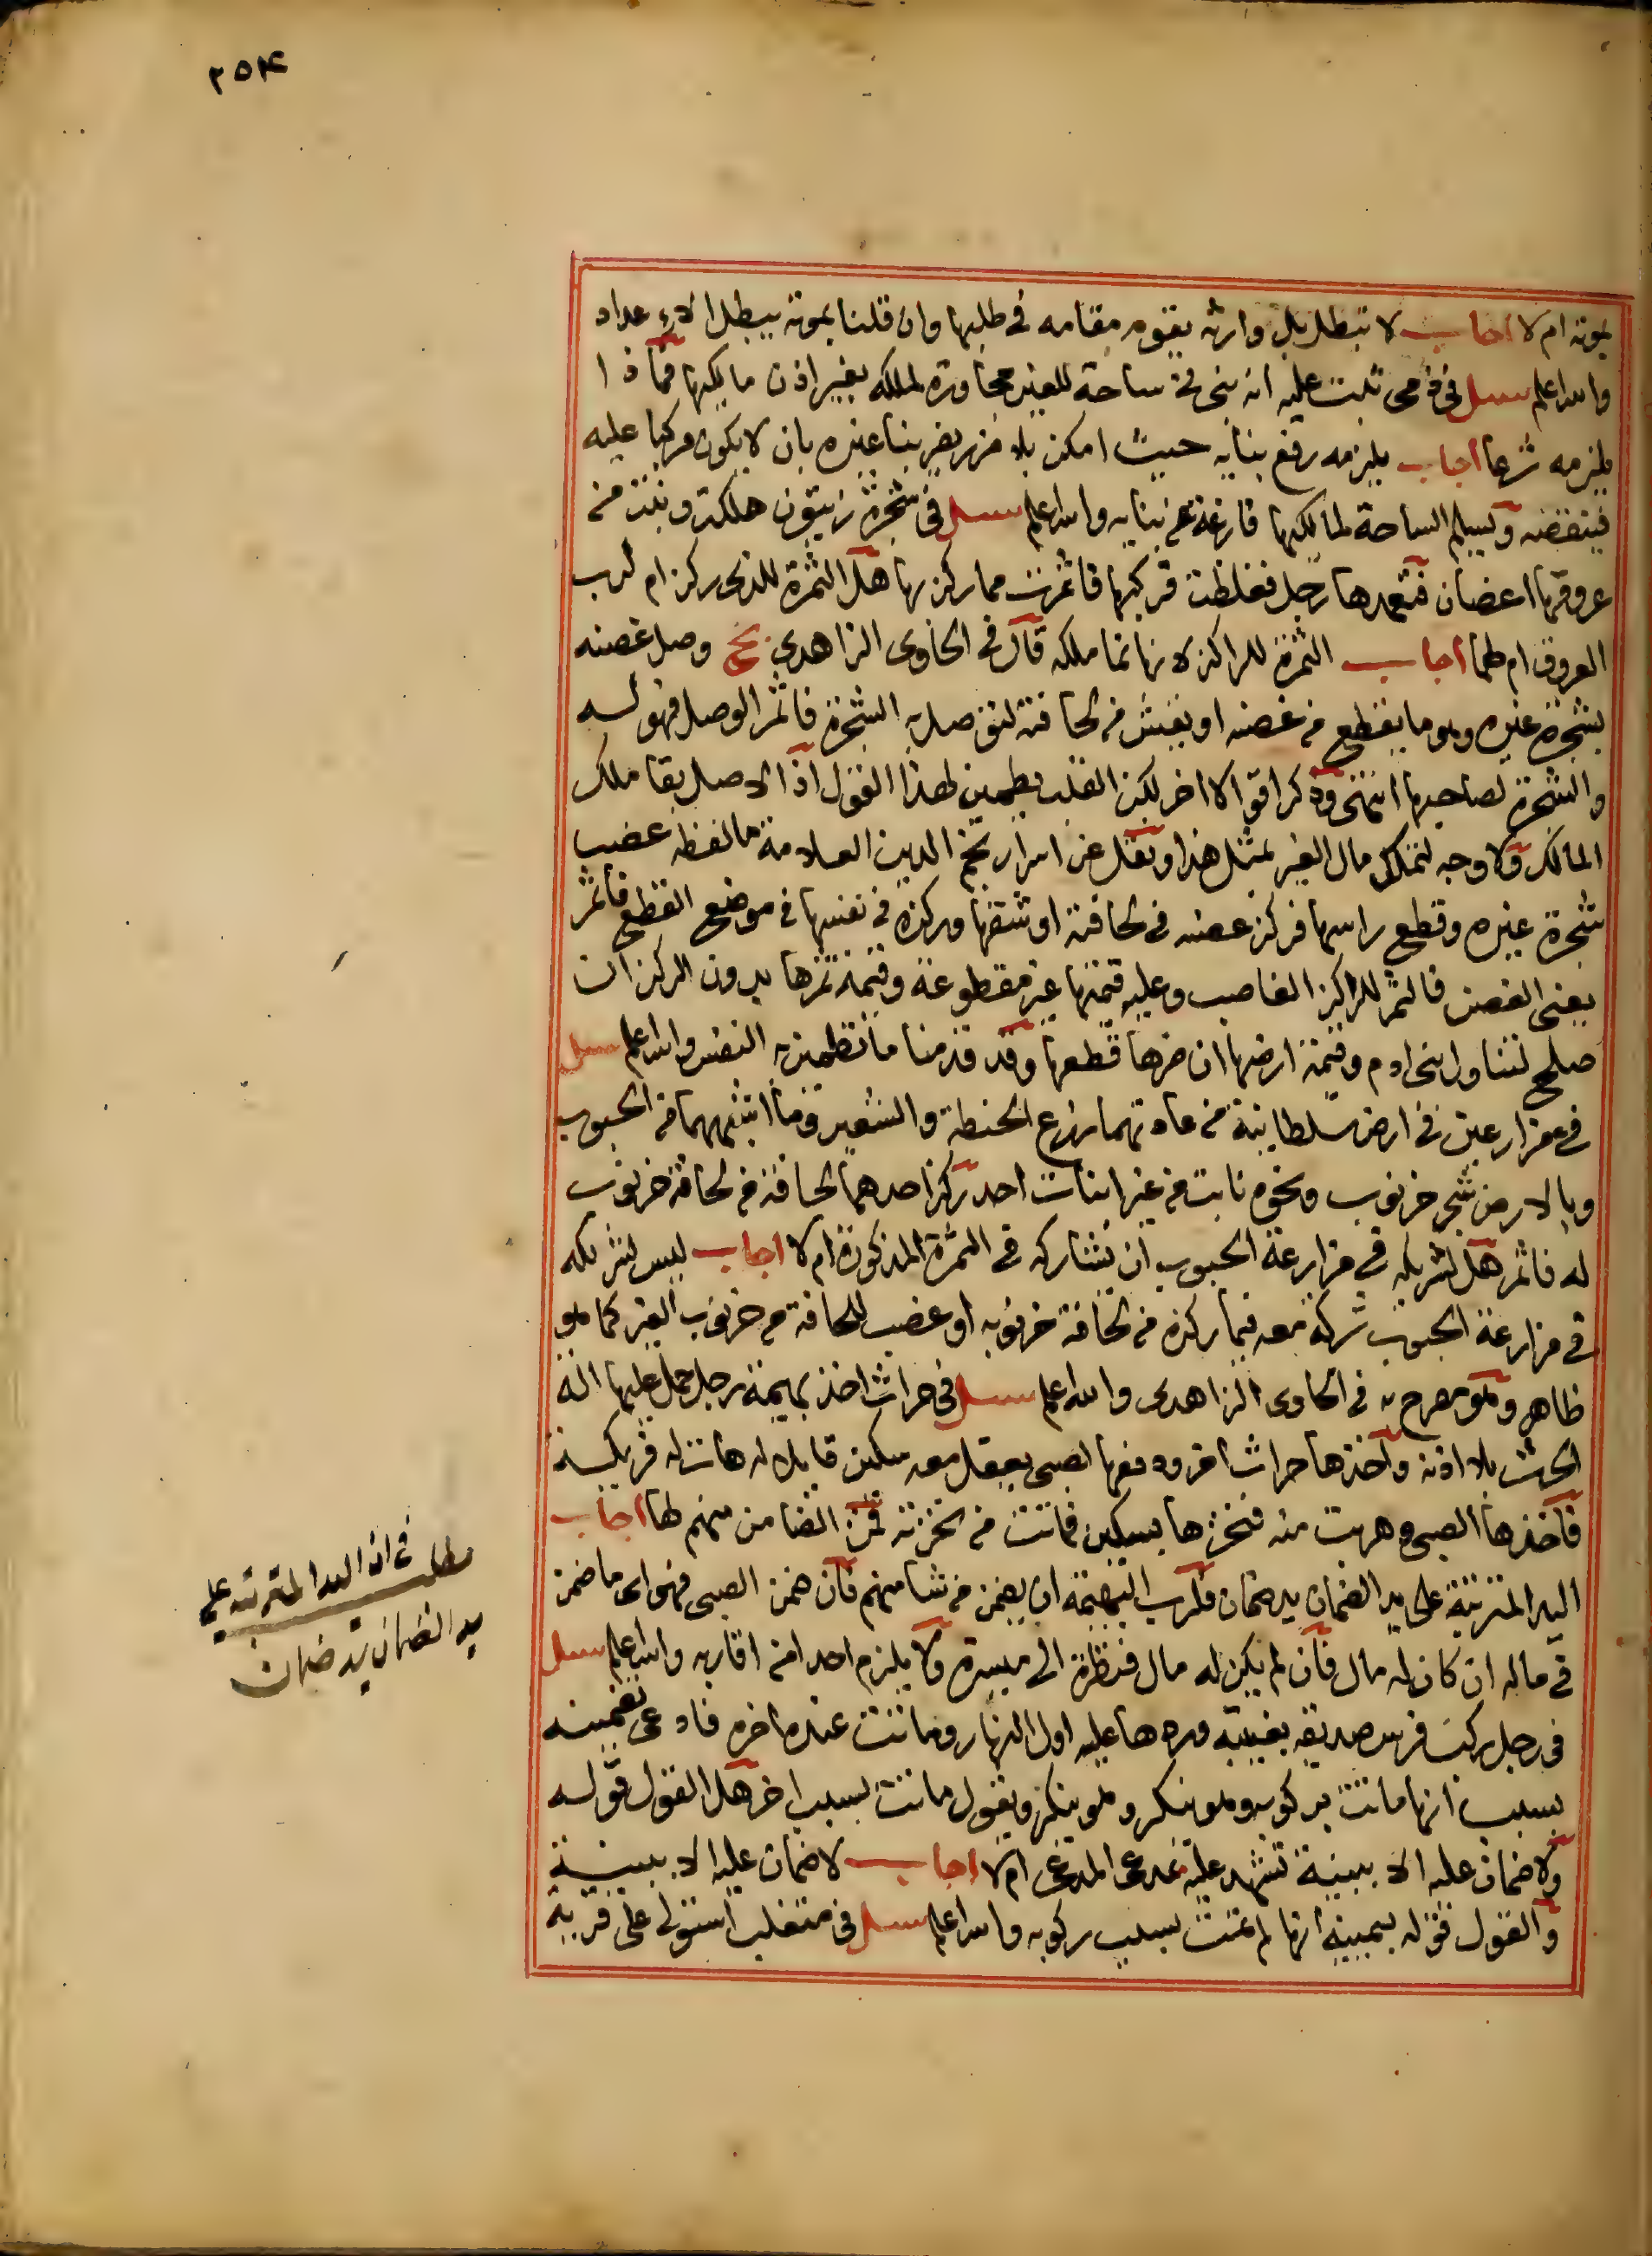 ٢٥٤
بموته ام لا اجاب لا تبطل بل وارثه يقوم مقامه في طلبها وان قلنا بموته يبطل الاعداد
والله اعلم سئل في ذمي ثبت عليه انه بنى في ساحة للغير مجاورة لملكه بغير اذن مالكها فماذا
يلزمه شرعا اجاب يلزمه رفع بنايه حيث امكن بلا ضرر يضر بنا غيره بان لا يكون مركبا عليه
فينقضه ويسلم الساحة لمالكها فارغة عن بنايه والله اعلم سئل في شجرة زيتون هلكت ونبت من
عروقها اغصان فتعهدها رجل فغلظت فركبها فاثمرت مما ركز بها هل الثمرة للذي ركز ام لرب
العروق ام لهما اجاب الثمرة للراكز لانها نما ملكه قال في الحاوى الزاهدي نج وصل غصنه
بشجرة غيره وهو ما يقطع من غصنه او يفتش من لحافته لتوصل به الشجرة فاثمر الوصل فهو له
والشجرة لصاحبها انتهى وذكر اقوالا اخر لكن القلب يطمين لهذا القول اذ الاصل بقا ملك
المالك ولا وجه لتملك مال الغير بمثل هذا ونقل عن اسرار نجم الدين العلامة ما لفظه غصب
شجرة غيره وقطع راسها فركز غصنه في لحافته او شقها وركزه في نفسها في موضع القطع فاثمر
يعني الغصن فالثمر للراكز الغاصب وعليه قيمتها غير مقطوعة وقيمة ثمرها بدون الركز ان
صلح لتناول بني ادم وقيمة ارضها ان ضرها قطعها وقد قدمنا ما تطمين به النفس والله اعلم سئل
في مزارعين في ارض سلطانية من عادتهما زرع الحنطة والشعير وما اشبههما من الحبوب
وبالارض شجر خرنوب ونحوه نابت من غير انبات احد ركز احدهما لحافة من لحافة خرنوب
له فاثمر هل لشريكه في مزارعة الحبوب ان يشاركه في الثمرة المذكورة ام لا اجاب ليس لشريكه
في مزارعة الحبوب شركة معه فيما ركزه من لحافة خرنوبه او غصب للحافة من خرنوب الغير كما هو
ظاهر وهو مصرح به في الحاوى الزاهدى والله اعلم سئل في حراث اخذ بهيمة رجل حمل عليها الة
الحرث بلا اذنه واخذها حراث اخر ودفعها لصبى يعقل معه سكين قايلا له هاته له
فاخذها الصبي وهربت منه فنخزها بسكين فماتت من نخزته فمن الضامن منهم لها اجاب
اليد المترتبة على يد الضمان يد ضمان فلرب البهيمة ان يضمن من شا منهم فان ضمن الصبي فهو اى ما ضمن
في ماله ان كان له مال فان لم يكن له مال فنظرة الى ميسرة ولا يلزم احدا من اقاربه والله اعلم سئل
في رجل ركب فرس صديقه بغيبته وردها عليه اول النهار وماتت عنده اخره فادعى تضمينه
بسبب انها ماتت بركوبه وهو ينكر وهو ينكر ويقول ماتت بسبب اخر هل القول قوله
ولا ضمان عليه الا ببينة تشهد عليه بمدعى المدعى ام لا اجاب لا ضمان عليه الا ببينة
والقول قوله بيمينه انها لم تمت بسبب ركوبه والله اعلم سئل في متغلب استولى على قرية
مطلب في ان اليد المترتبة على
يد الضمان يد ضمان